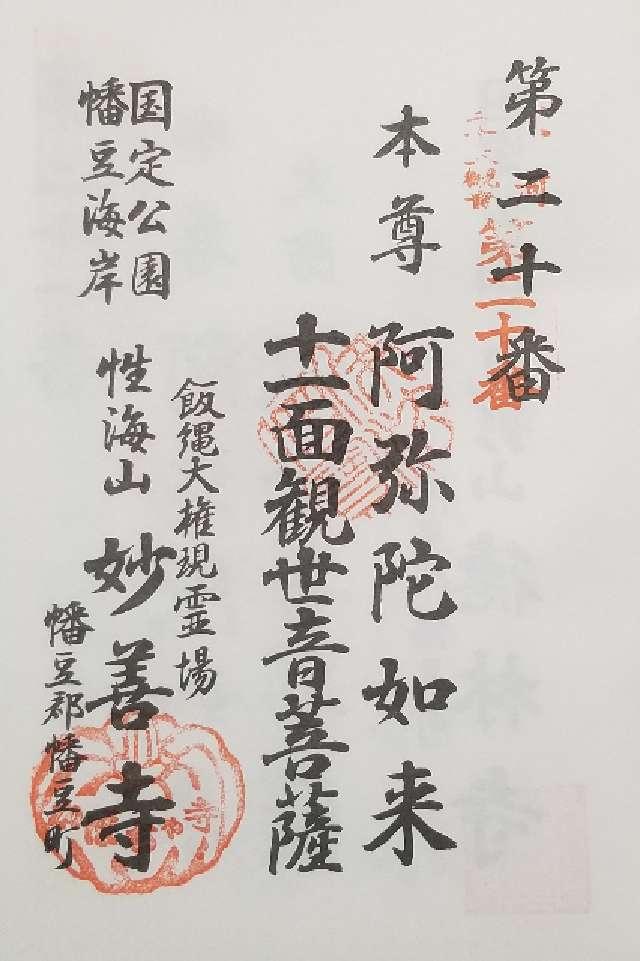 第二十番
第二十番
本尊 阿弥陀如来
十一面観世音菩薩
飯縄大権現霊場
国定公園
幡豆海岸
性海山 妙善寺
幡豆郡幡豆町